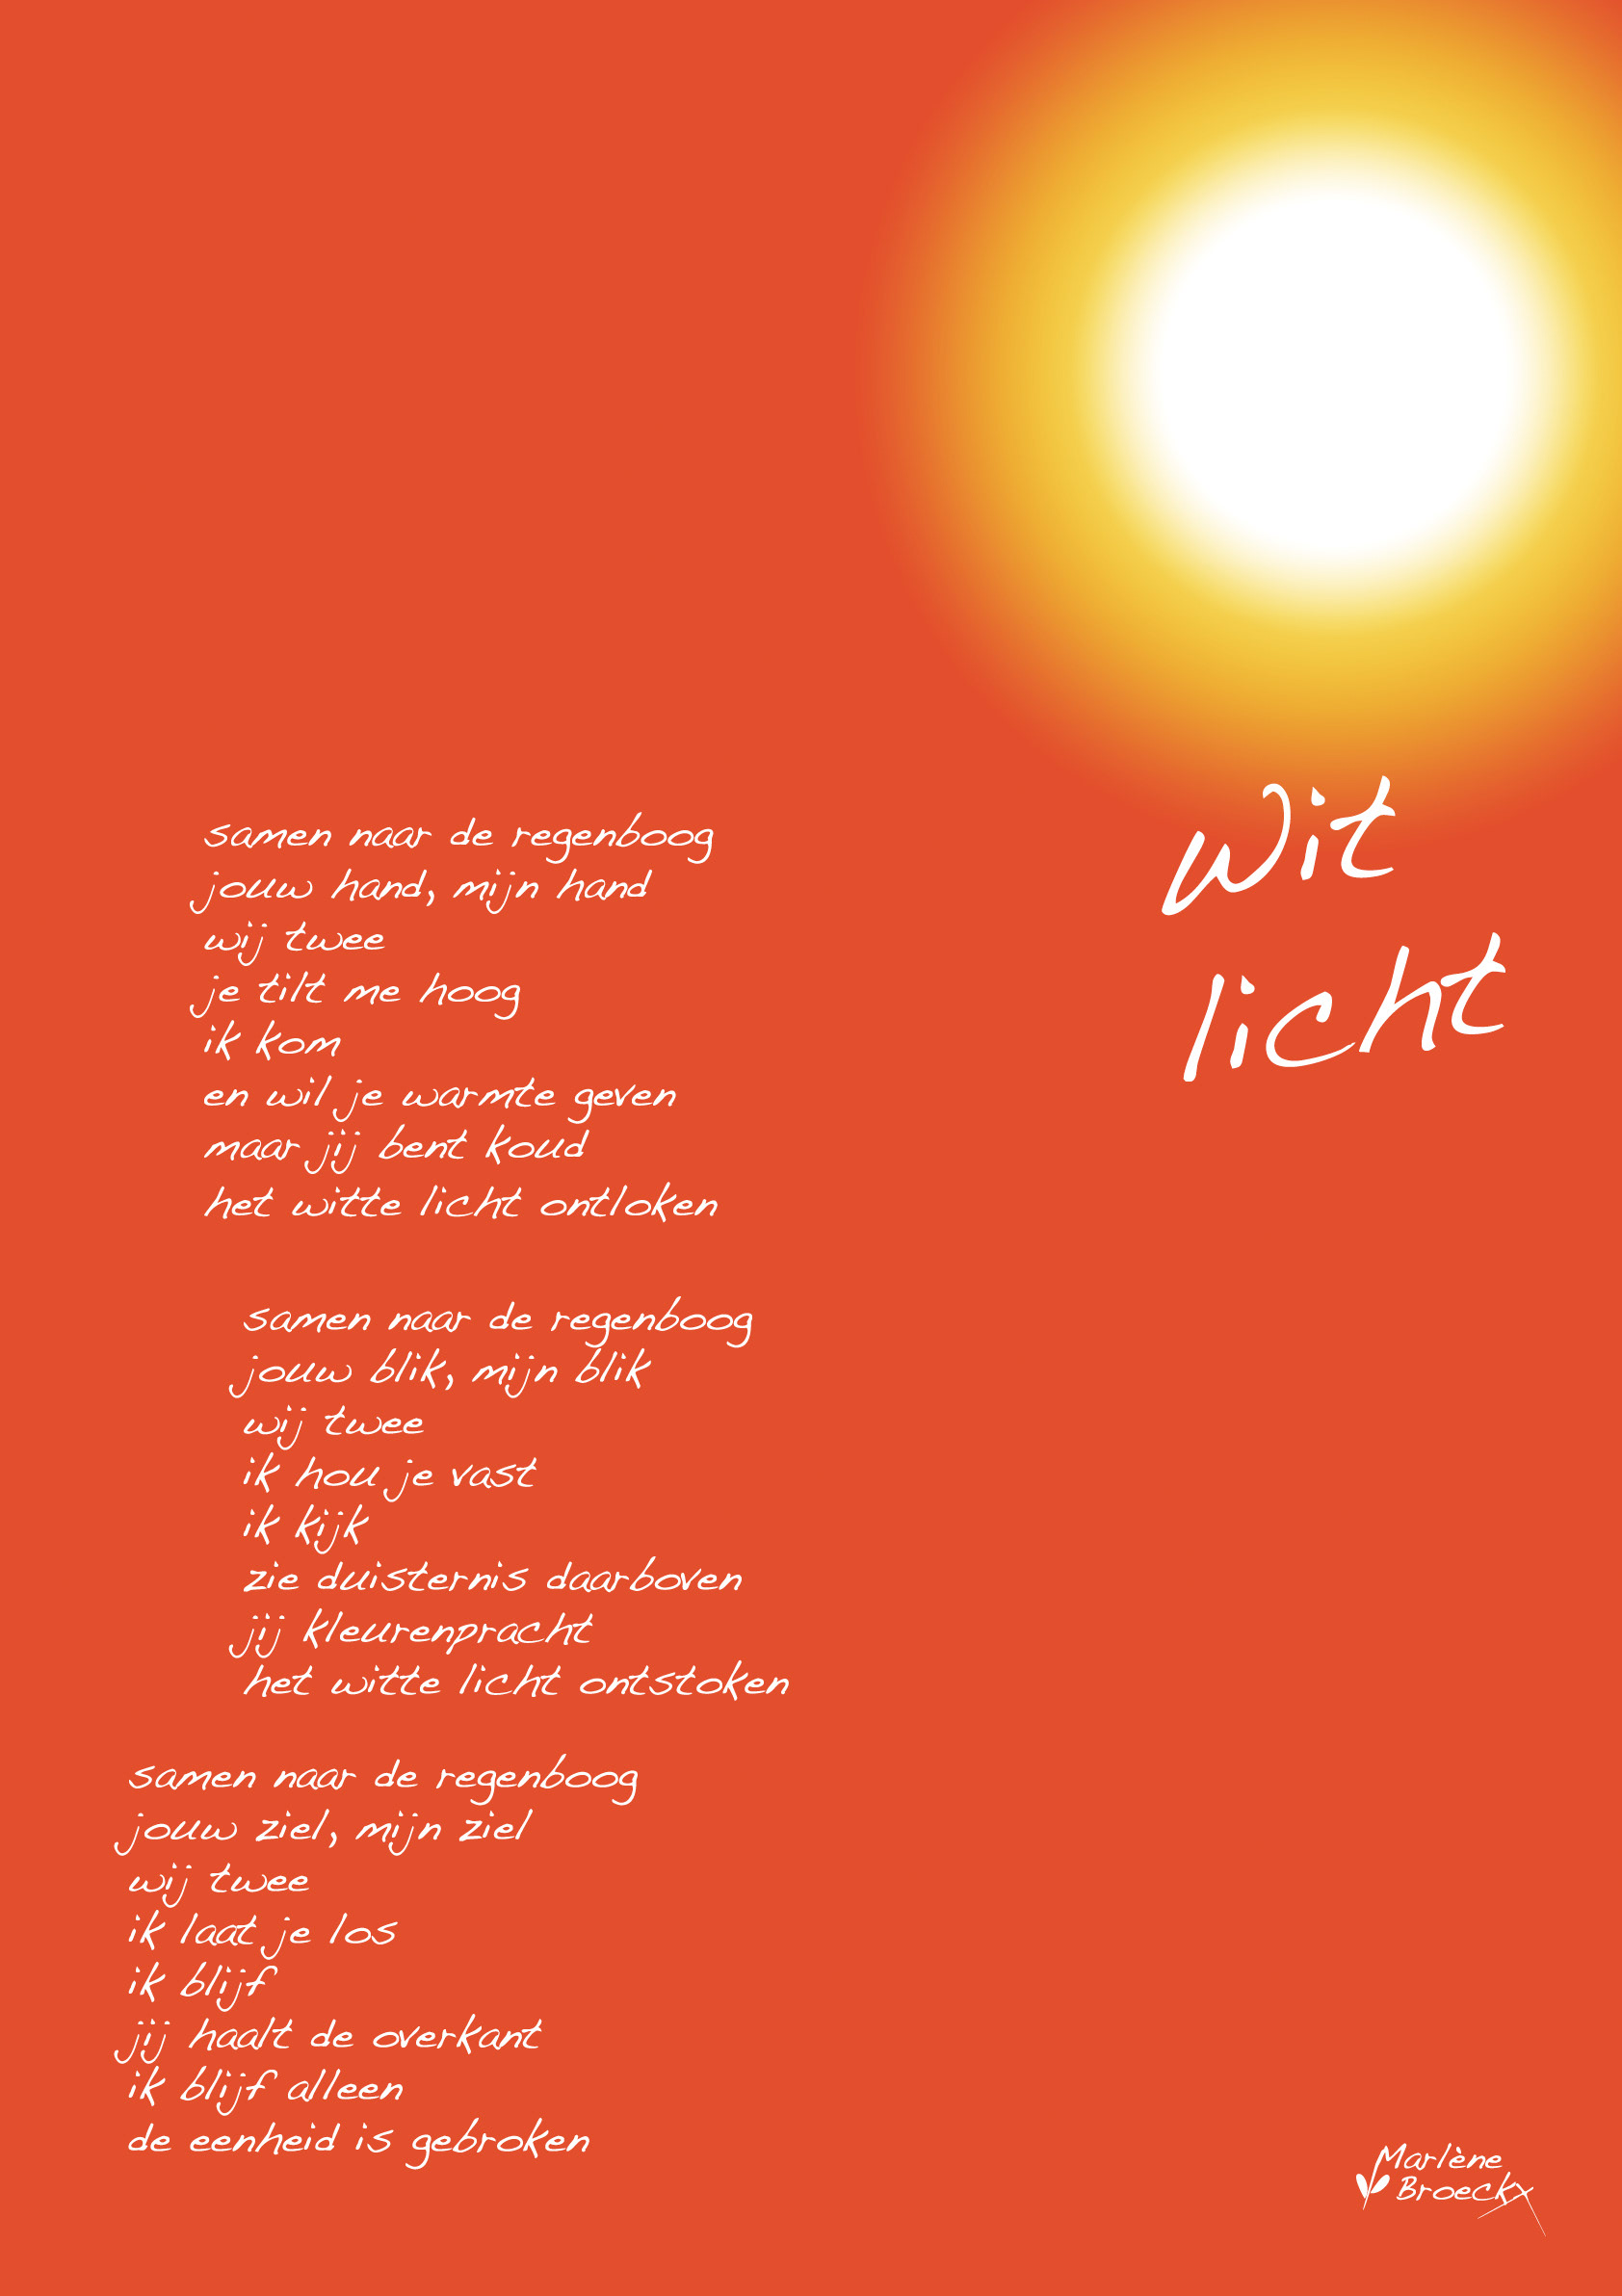 wit
licht
samen naar de regenboog
jouw hand, mijn hand
wij twee
je tilt me hoog
ik kom
en wil je warmte geven
maar jij bent koud
het witte licht ontloken
samen naar de regenboog
jouw blik, mijn blik
wij twee
ik hou je vast
ik kijk
zie duisternis daarboven
jij kleurenpracht
het witte licht ontstoken
samen naar de regenboog
jouw ziel, mijn ziel
wij twee
ik laat je los
ik blijf
jij haalt de overkant
ik blijf alleen
de eenheid is gebroken
Marlène
Broeckx